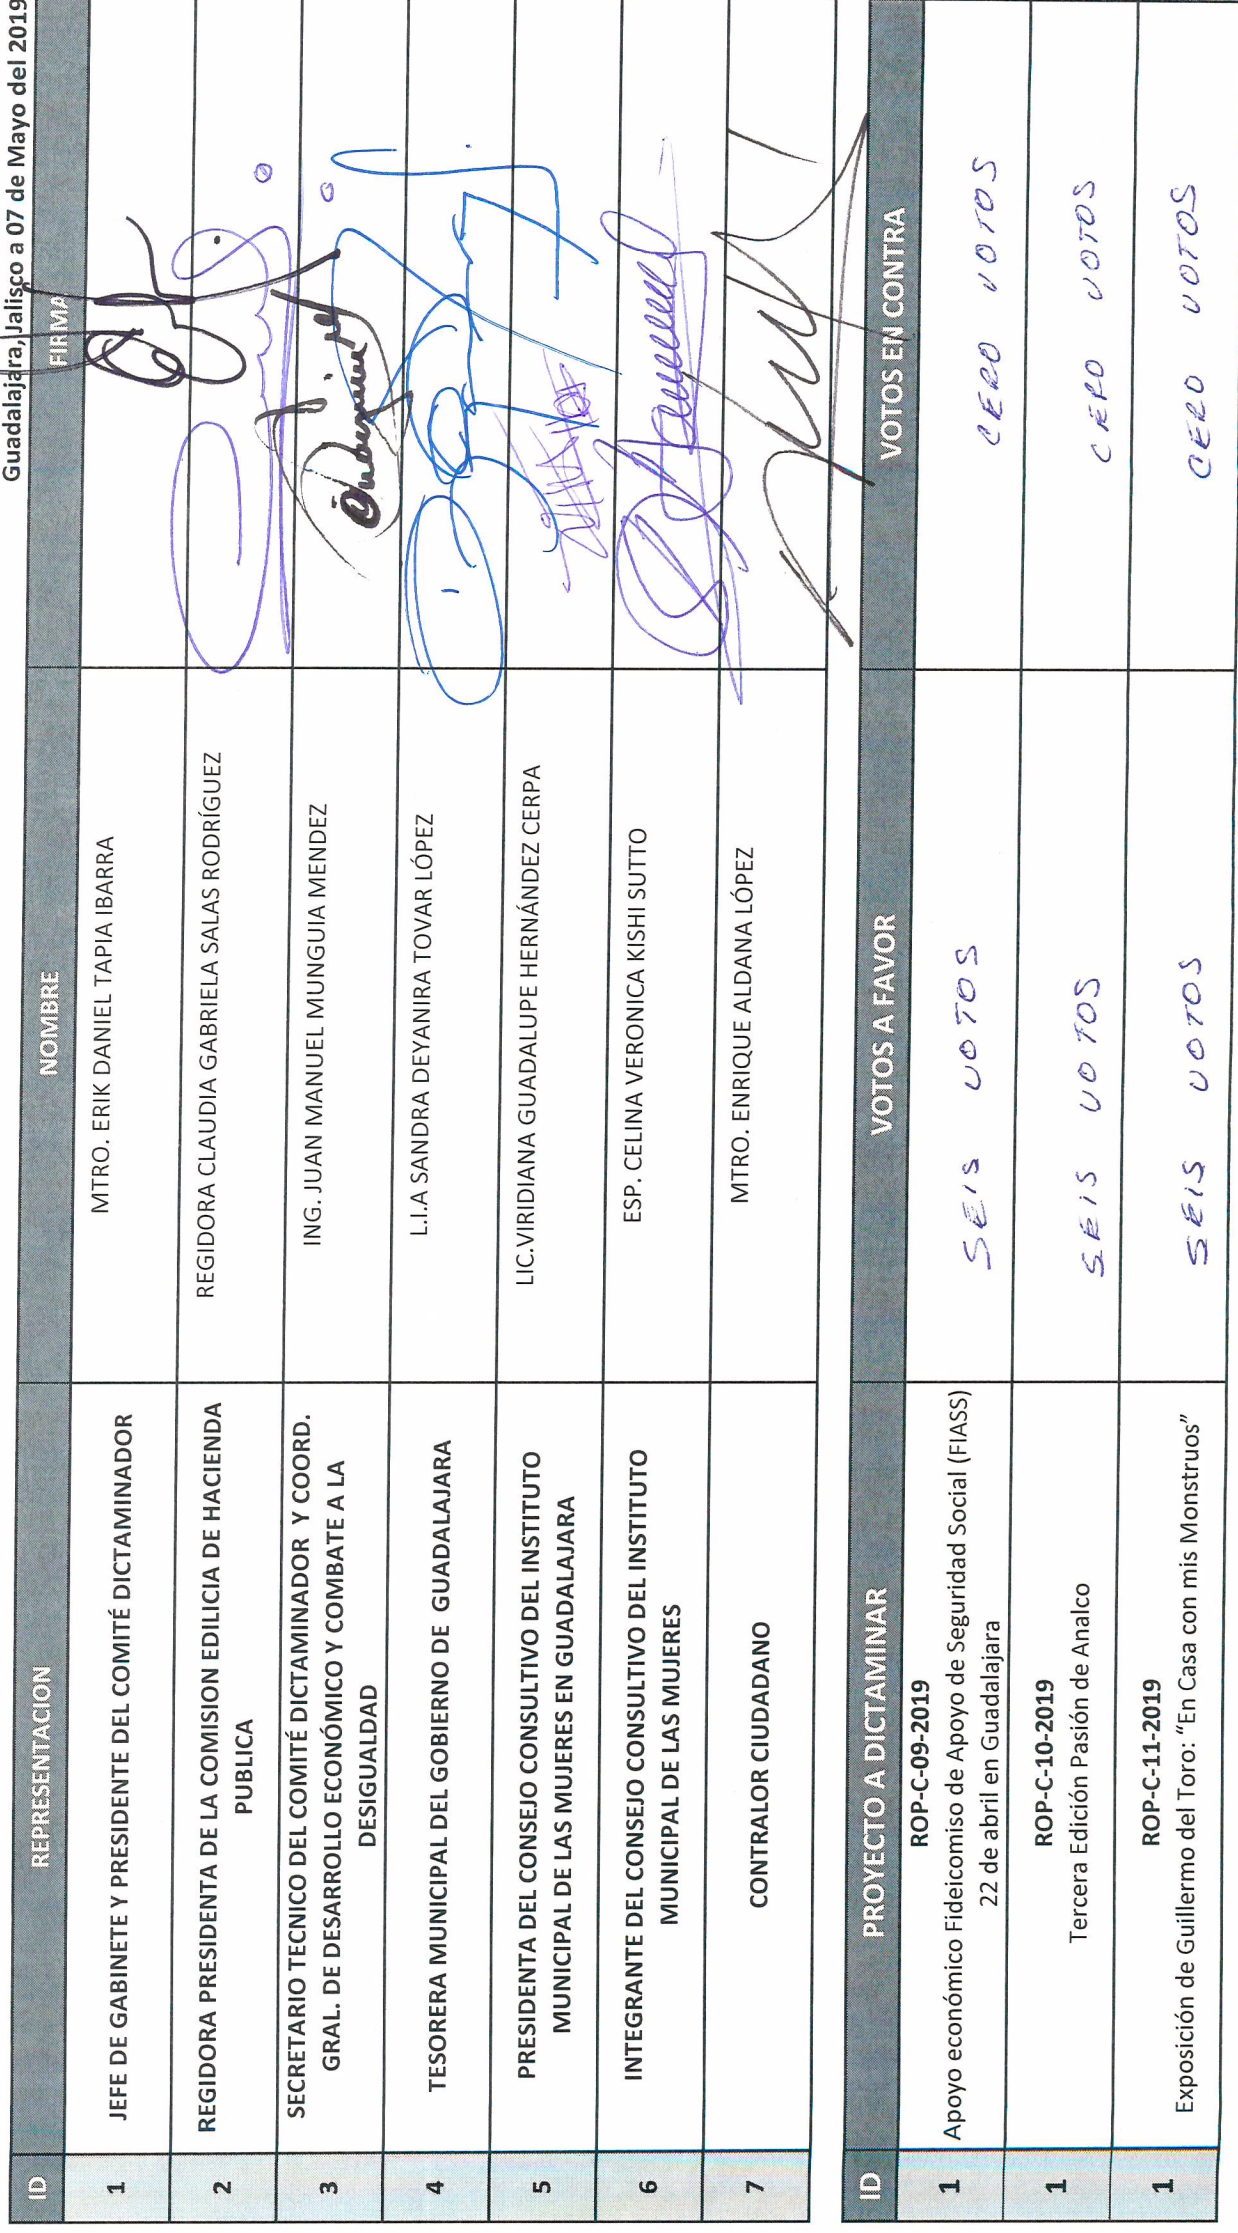 Guadalajara, Jalisco a 07 de Mayo del 2019
ID REPRESENTACION NOMBRE FIRMA
1 JEFE DE GABINETE Y PRESIDENTE DEL COMITÉ DICTAMINADOR MTRO. ERIK DANIEL TAPIA IBARRA
2 REGIDORA PRESIDENTA DE LA COMISION EDILICIA DE HACIENDA
PUBLICA
REGIDORA CLAUDIA GABRIELA SALAS RODRÍGUEZ
3 SECRETARIO TECNICO DEL COMITÉ DICTAMINADOR Y COORD.
GRAL. DE DESARROLLO ECONÓMICO Y COMBATE A LA
DESIGUALDAD
ING. JUAN MANUEL MUNGUIA MENDEZ
4 TESORERA MUNICIPAL DEL GOBIERNO DE GUADALAJARA L.I.A SANDRA DEYANIRA TOVAR LÓPEZ
5 PRESIDENTA DEL CONSEJO CONSULTIVO DEL INSTITUTO
MUNICIPAL DE LAS MUJERES EN GUADALAJARA
LIC.VIRIDIANA GUADALUPE HERNÁNDEZ CERPA
6 INTEGRANTE DEL CONSEJO CONSULTIVO DEL INSTITUTO
MUNICIPAL DE LAS MUJERES
ESP. CELINA VERONICA KISHI SUTTO
7 CONTRALOR CIUDADANO MTRO. ENRIQUE ALDANA LÓPEZ
ID PROYECTO A DICTAMINAR VOTOS A FAVOR VOTOS EN CONTRA
1 ROP-C-09-2019
Apoyo económico Fideicomiso de Apoyo de Seguridad Social (FIASS)
22 de abril en Guadalajara
SEIS VOTOS CERO VOTOS
1 ROP-C-10-2019
Tercera Edición Pasión de Analco
SEIS VOTOS CERO VOTOS
1 ROP-C-11-2019
Exposición de Guillermo del Toro: “En Casa con mis Monstruos”
SEIS VOTOS CERO VOTOS